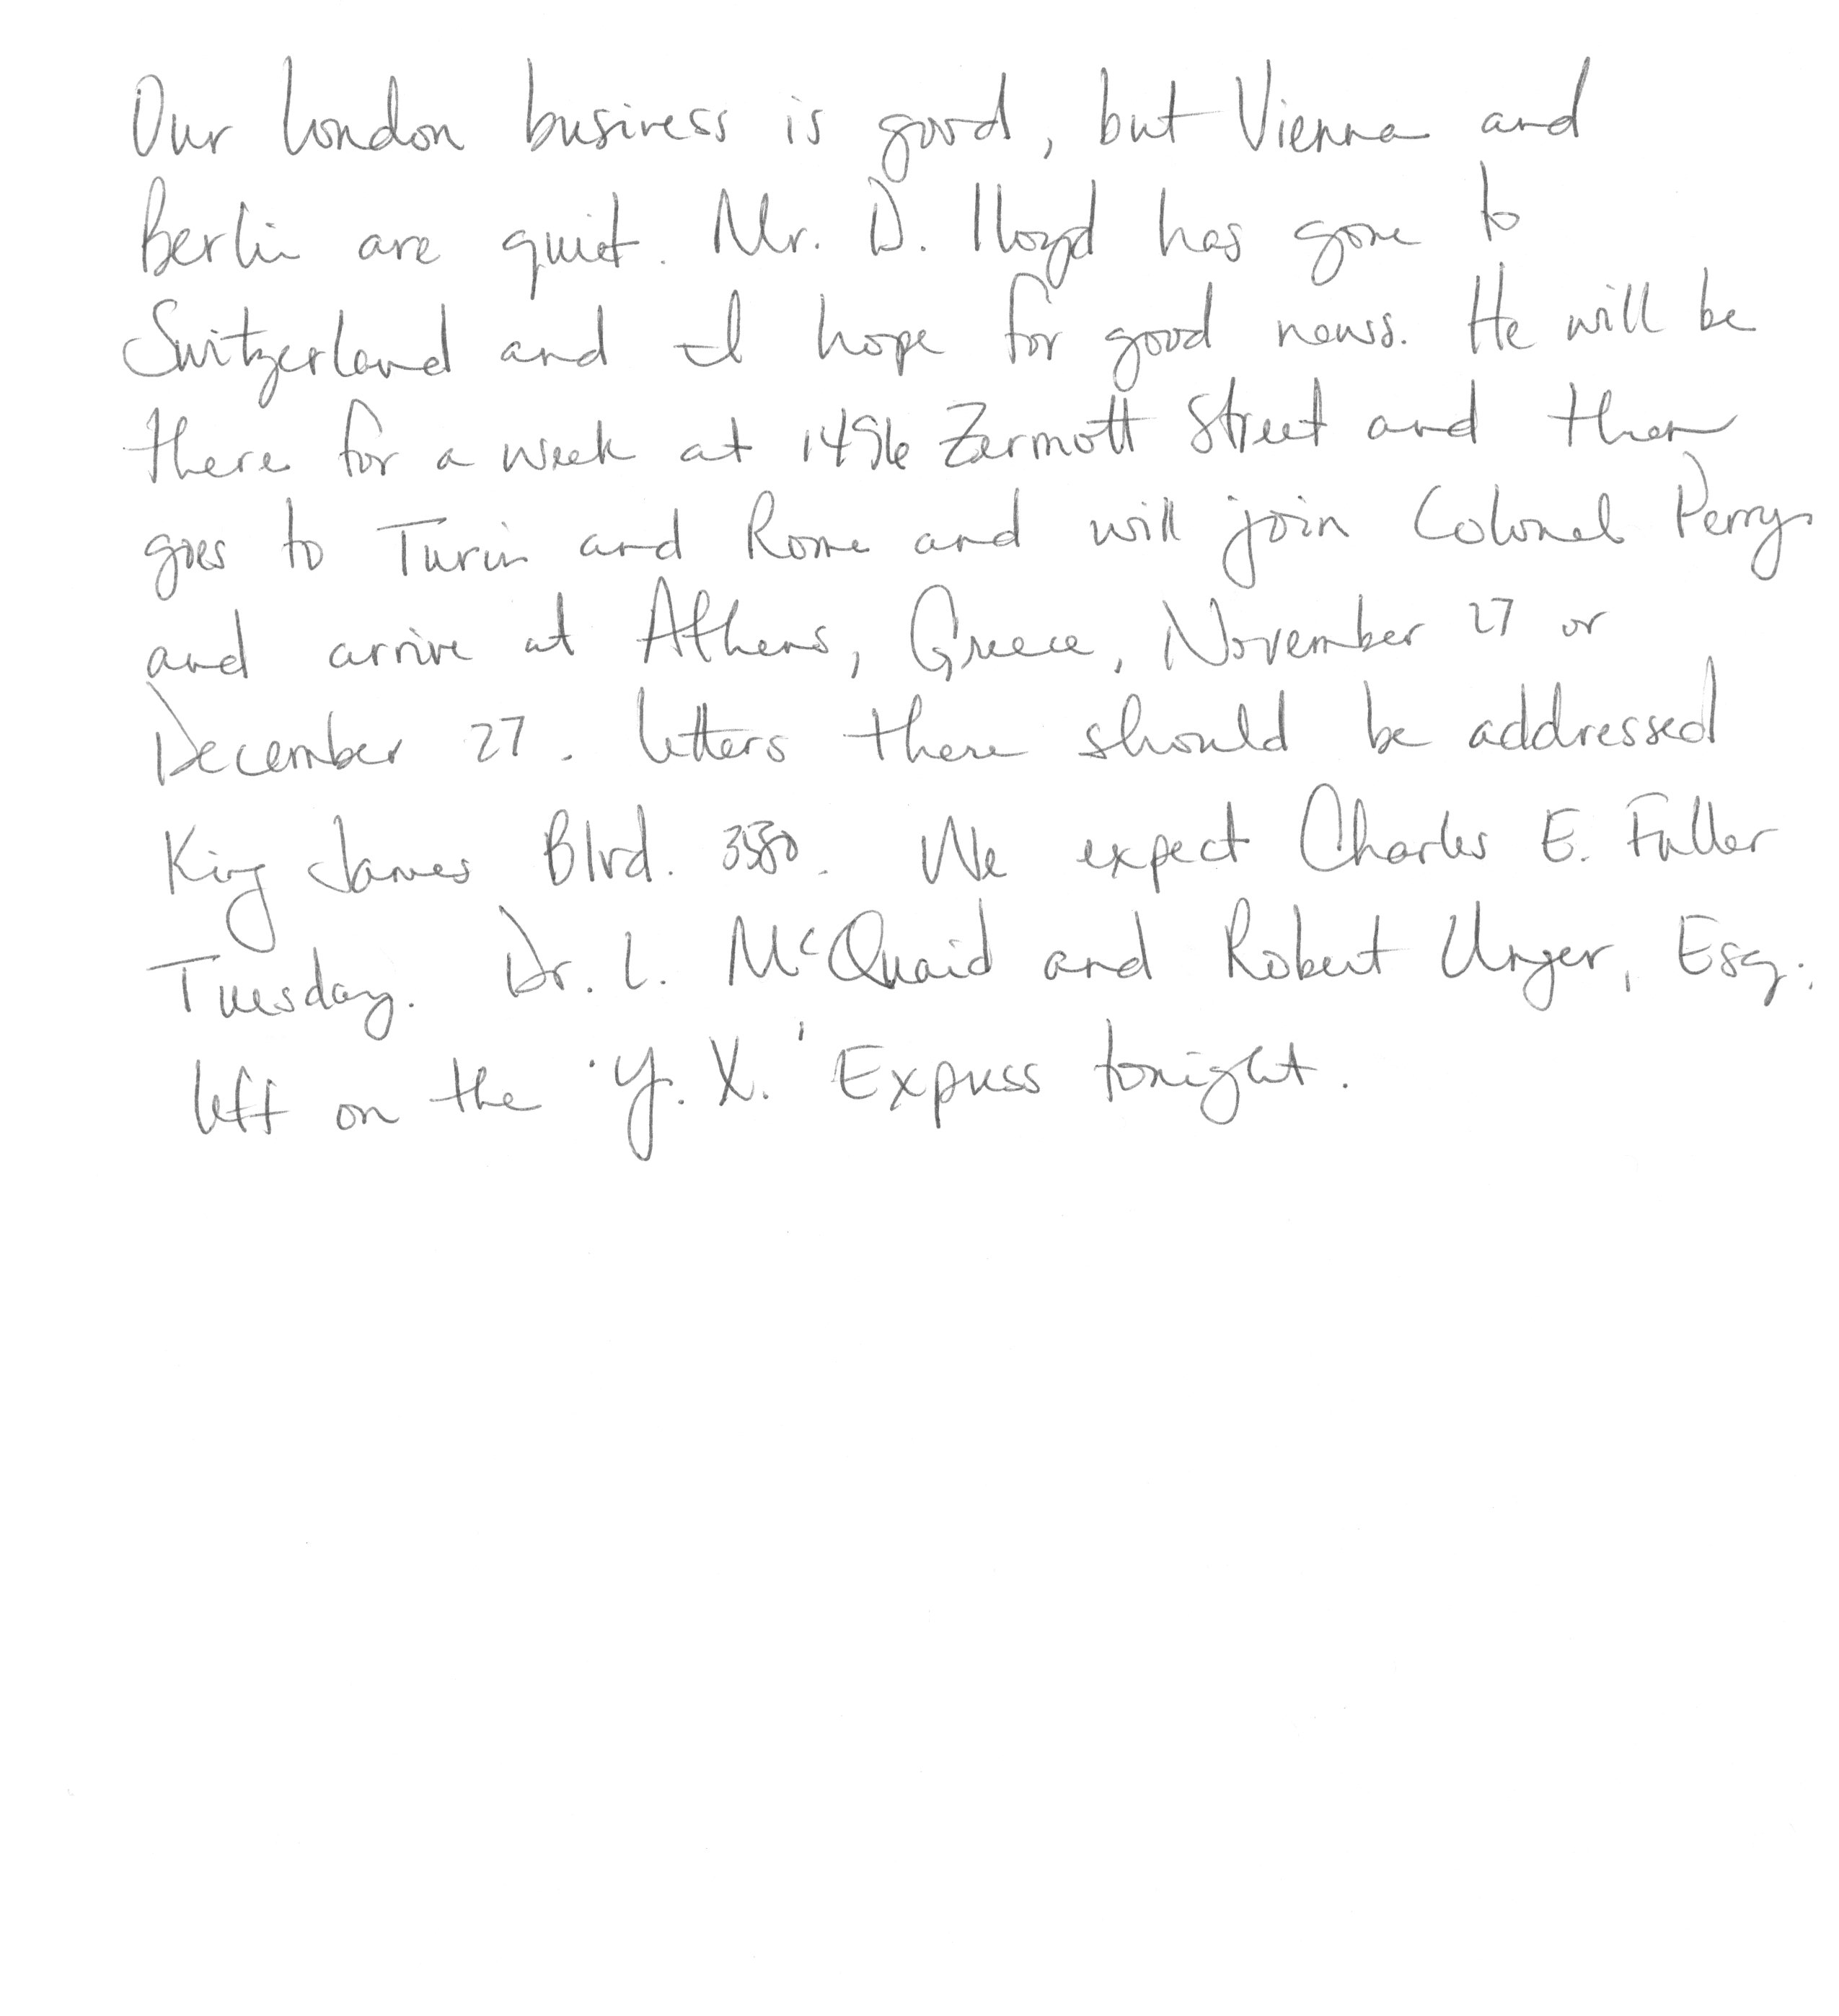 Our London business is good, but Vienna and
Berlin are quiet. Mr. D. Lloyd has gone to
Switzerland and I hope for good news. He will be
there for a week at 1496 Zermott Street and then
goes to Turin and Rome and will join Colonel Perry
and arrive at Athens, Greece, November 27 or
December 27. Letters there should be addressed
King James Blvd. 3580. We expect Charles E. Fuller
Tuesday. Dr. L. McQuaid and Robert Unger, Esq.,
left on the 'Y. X.' Express tonight.